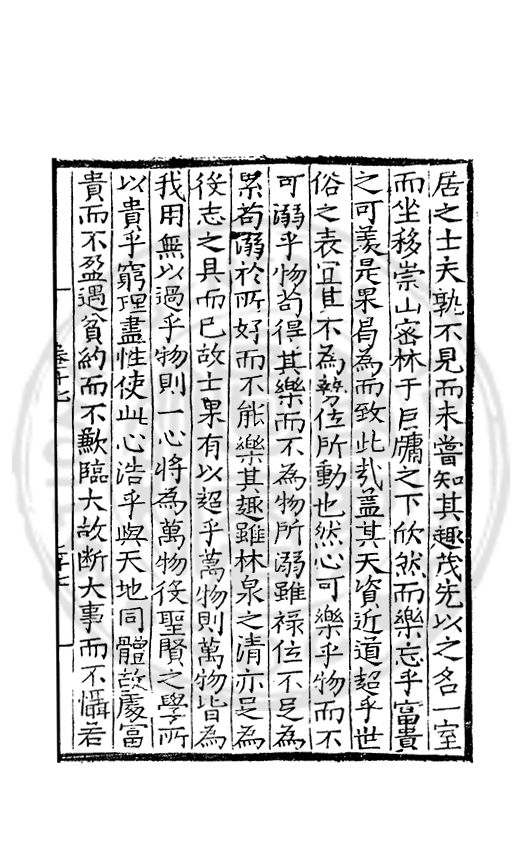 居之士夫孰不見而未嘗知其趣茂先以之名一室
而坐移崇山密林于巨牖之下欣然而樂忘乎富貴
之可羨是果曷為而致此哉蓋其天資近道超乎世
俗之表宜其不為勢位所動也然心可樂乎物而不
可溺乎物茍得其樂而不為物所溺雖祿位不足為
累茍溺於所好而不能樂其趣雖林泉之清亦足為
役志之具而已故士果有以超乎萬物則萬物皆為
我用無以過乎物則一心將為萬物役聖賢之學所
以貴乎窮理盡性使此心浩乎與天地同體故處富
貴而不盈遇貧約而不歉臨大故断大事而不懾若